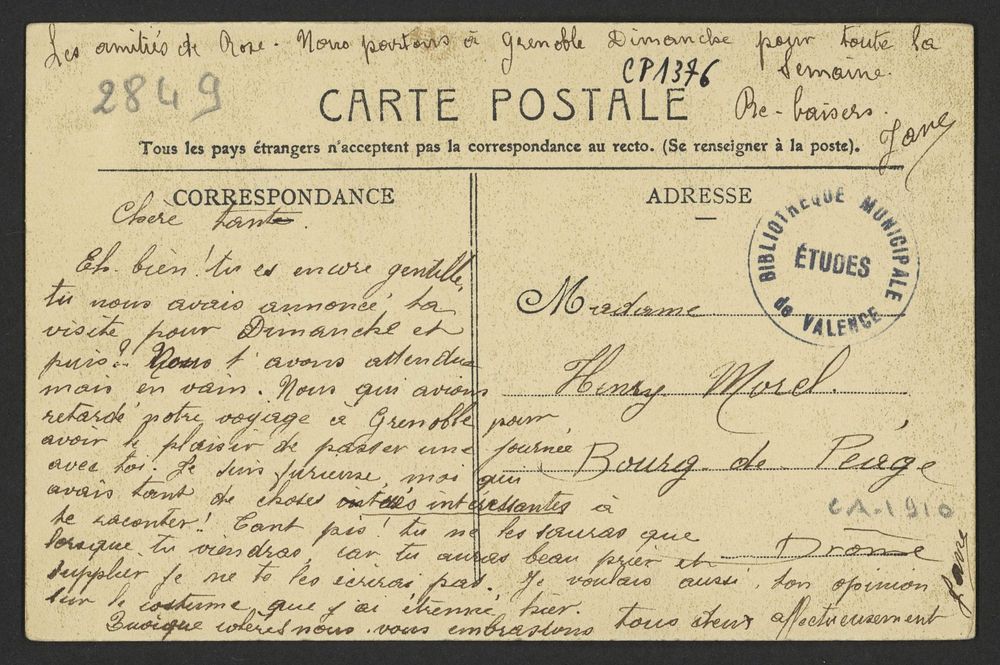 Les amitiés de Rose. Nous partons à Grenoble Dimanche pour toute la
Semaine.
Re-baisers.
Jane
2849
CP1376
CARTE POSTALE
Tous les pays étrangers n'acceptent pas la correspondance au recto. (Se renseigner à la poste).
CORRESPONDANCE
Chère tante.
Eh. bien! tu es encore gentille,
tu nous avais annoncé ta
visite pour Dimanche et
puis? Nous t'avons attendue
mais en vain. Nous qui avions
retardé notre voyage à Grenoble pour
avoir le plaisir de passer une journée
avec toi. Je suis furieuse, moi qui
avais tant de choses intéressantes à
te raconter! Tant pis! tu ne les sauras que
lorsque tu viendras, car tu auras beau prier et
supplier je ne te les écrirai pas. Je voulais aussi, ton opinion
sur le costume que j'ai étrenné hier.
Quoique colères nous vous embrassons tous deux affectueusement
Jane
ADRESSE
BIBLIOTHEQUE MUNICIPALE
ÉTUDES
de VALENCE
Madame
Henry Morel.
Bourg-de-Péage
CA.1910
Drôme